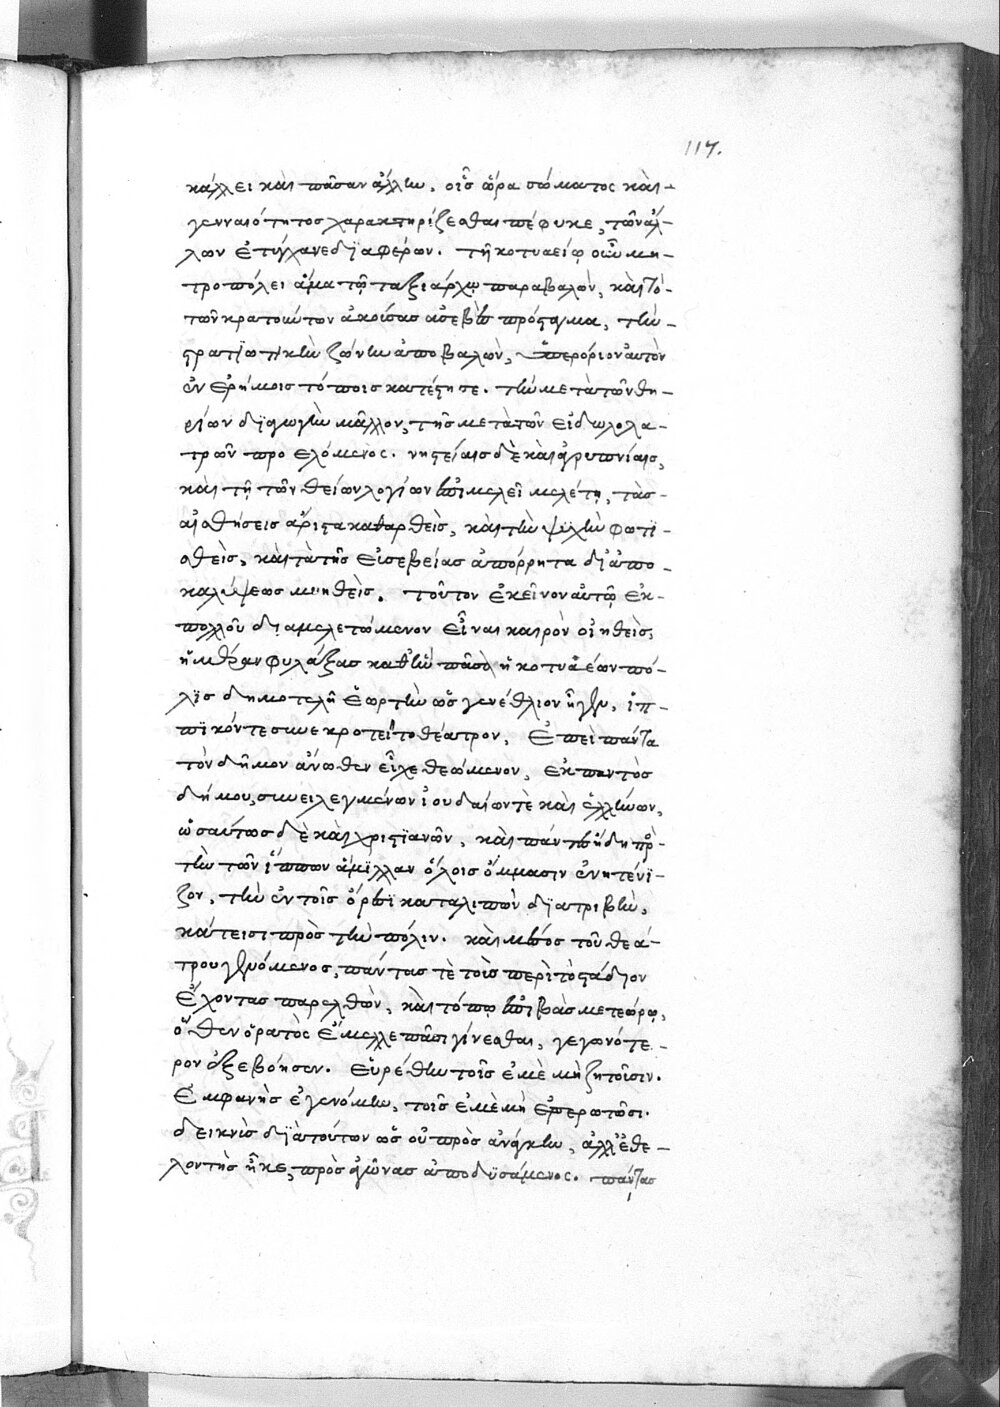 117.
κάλλει καὶ πᾶσαν ἄλλην, οἷς ὥρα σώματος καὶ
γενναιότητος χαρακτηρίζεσθαι πέφυκε, τῶν ἄλ-
λων ἐτύγχανε διαφέρων. τῇ κοτυαείῳ οὖν μη-
τροπόλει ἅμα τῷ ταξιάρχῳ παραβαλὼν, καὶ τὸ
τῶν κρατούντων ἀκούσας ἀσεβὲς πρόσταγμα, τὴν
στρατιωτικὴν ζώνην ἀποβαλὼν, ὑπερόριον αὐτὸν
ἐν ἐρήμοις τόποις κατέστησε. τὴν μετὰ τῶν θη-
ρίων διαγωγὴν μᾶλλον, τῆς μετὰ τῶν εἰδωλολα-
τρῶν προελόμενος. νηστείαις δὲ καὶ ἀγρυπνίαις,
καὶ τῇ τῶν θείων λογίων ἐπιμελεῖ μελέτῃ, τὰς
αἰσθήσεις ἄριστα καθαρθεὶς, καὶ τὴν ψυχὴν φωτι-
σθεὶς, καὶ τὰ τῆς εὐσεβείας ἀπόρρητα δι' ἀπο-
καλύψεως μυηθεὶς. τοῦτον ἐκεῖνον αὐτῷ ἐκ
πολλοῦ διαμελετώμενον εἶναι καιρὸν οἰηθεὶς,
ἡμέραν φυλάξας καθ' ἣν πᾶσα ἡ κοτυαέων πό-
λις δημοτελῆ ἑορτὴν ὡς γενέθλιον ἦγεν, ἱπ-
πικόν τε συνεκροτεῖτο θέατρον, ἐπεὶ πάντα
τὸν δῆμον ἄνωθεν εἶχε θεώμενον, ἐκ παντὸς
δήμου, συνειλεγμένων ἰουδαίων τὲ καὶ ἑλλήνων,
ὡσαύτως δὲ καὶ χριστιανῶν, καὶ πάντες ἤδη πρὸς
τὴν τῶν ἵππων ἅμιλλαν ὅλοις ὄμμασιν ἐνητένι-
ζον, τὴν ἐν τοῖς ὄρεσι καταλιπὼν διατριβὴν,
κάτεισι πρὸς τὴν πόλιν. καὶ μέσος τοῦ θεά-
τρου γενόμενος, πάντας τὲ τοὺς περὶ τὸ στάδιον
ἔχοντας παρελθὼν, καὶ τόπῳ ἐπιβὰς μετεώρῳ,
ὅθεν ὁρατὸς ἔμελλε πᾶσι γίνεσθαι, γεγωνότε-
ρον ἐξεβόησεν. Εὑρέθην τοῖς ἐμὲ μὴ ζητοῦσιν.
Ἐμφανὴς ἐγενόμην, τοῖς ἐμὲ μὴ ἐπερωτῶσι.
δεικνὺς διὰ τούτων ὡς οὐ πρὸς ἀνάγκην, ἀλλ' ἐθε-
λοντὴς ἧκε, πρὸς ἀγῶνας ἀποδυσάμενος. πάντας